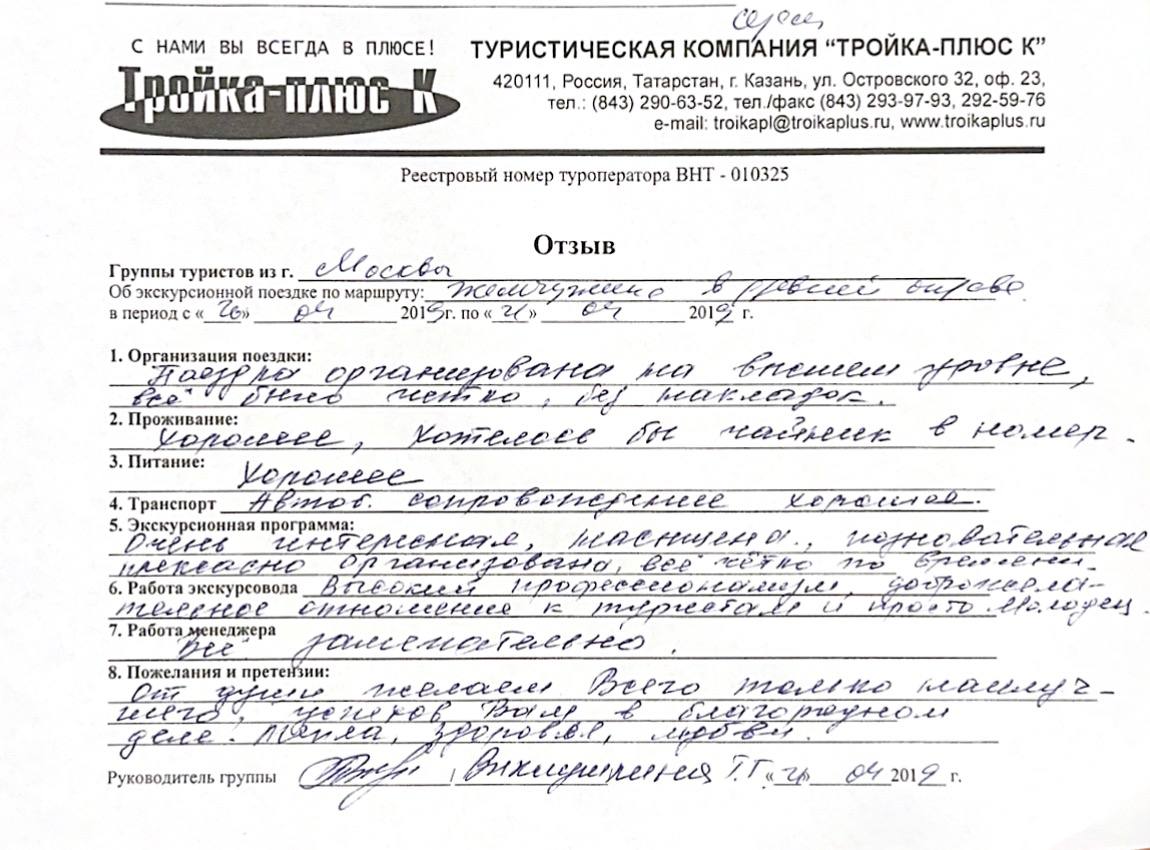 С НАМИ ВЫ ВСЕГДА В ПЛЮСЕ!
Тройка-плюс К
ТУРИСТИЧЕСКАЯ КОМПАНИЯ “ТРОЙКА-ПЛЮС К”
420111, Россия, Татарстан, г. Казань, ул. Островского 32, оф. 23,
тел.: (843) 290-63-52, тел./факс (843) 293-97-93, 292-59-76
e-mail: troikapl@troikaplus.ru, www.troikaplus.ru
Реестровый номер туроператора ВНТ - 010325
Отзыв
Группы туристов из г. Москвы
Об экскурсионной поездке по маршруту: в оправе
в период с « » 04 2019г. по « » 04 2019 г.
1. Организация поездки:
Поездка организована на высшем уровне,
всё было четко, без накладок.
2. Проживание:
Хорошее, хотелось бы чайник в номер.
3. Питание:
Хорошее
4. Транспорт Автоб. сопровождение хорошее.
5. Экскурсионная программа:
Очень интересная, насыщена, познавательная
прекрасно организована, всё чётко по времени.
6. Работа экскурсовода Высокий профессионализм, доброжела-
тельное отношение к туристам и просто молодец.
7. Работа менеджера
Всё замечательно.
8. Пожелания и претензии:
От души желаем Всего только наилуч-
шего, успехов Вам в благородном
деле. Тепла, здоровья, любви.
Руководитель группы Т.Г. « » 04 2019 г.